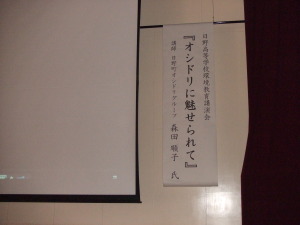 日野高等学校環境教育講演会
『オシドリに魅せられて』
講師 日野町オシドリグループ 森田 順子 氏